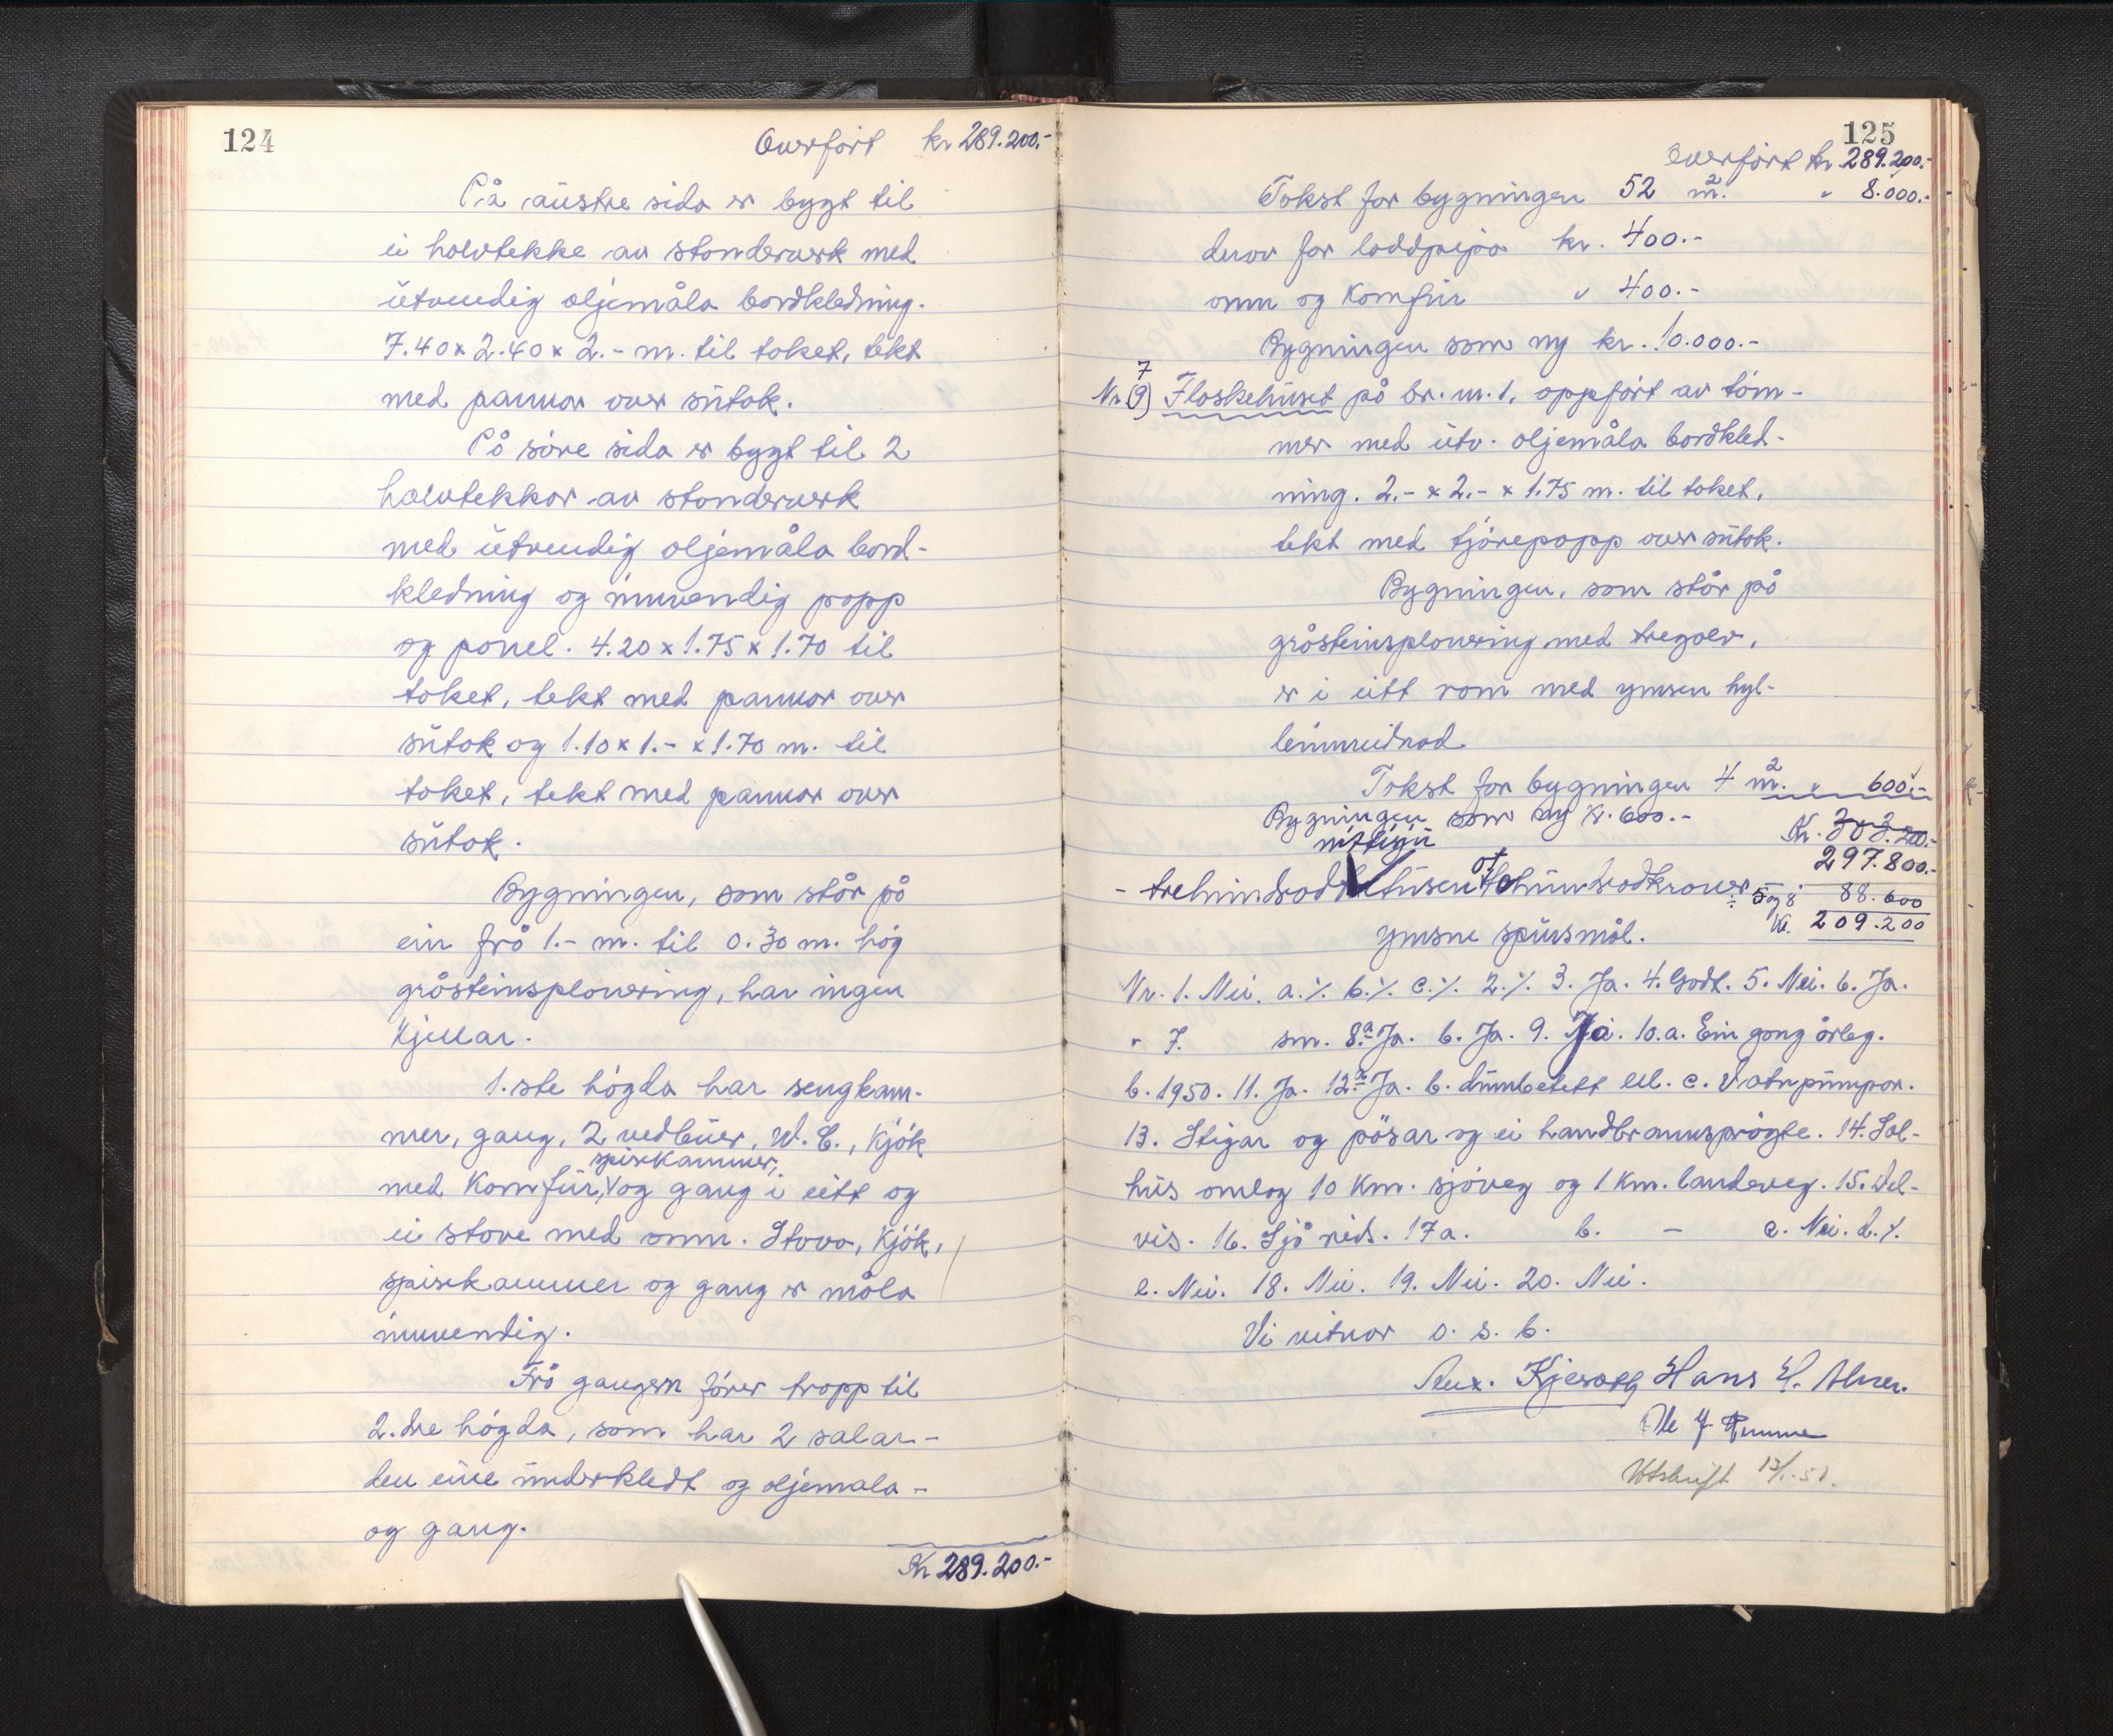 124
Overført kr 289.200.-
På austre sida er bygt til
ei halvtekke av stenderverk med
utvendig oljemåla bordkledning.
7.40 x 2.40 x 2.- m. til taket, tekt
med pannor over sutak.
På søre sida er bygt til 2
halvtekkor av stenderverk
med utvendig oljemåla bord-
kledning og innvendig papp
og panel. 4.20 x 1.75 x 1.70 til
taket, tekt med pannor over
sutak og 1.10 x 1.- x 1.70 m. til
taket, tekt med pannor over
sutak.
Bygningen, som står på
ein frå 1.- m. til 0.30 m. høg
gråsteinsplanering, har ingen
kjellar.
1.ste høgda har sengkam-
mer, gang, 2 vedbuer, W.C., kjøk
spiskammer,
med komfur, og gang i eitt og
ei stove med omn. Stova, kjøk,
spiskammer og gang er måla
innvendig.
Frå gangen fører trapp til
2.dre høgda, som har 2 salar -
den eine underkledt og oljemala -
og gang.
Kr 289.200.-
125
Overført kr 289.200.-
Takst for bygningen 52 m². " 8.000.-
derav for loddpipa kr. 400.-
omn og komfur " 400.-
Bygningen som ny kr. 10.000.-
7
Nr (9) Flaskehuset på br. nr. 1, oppført av tøm-
mer med utv. oljemåla bordkled-
ning. 2.- x 2.- x 1.75 m. til taket,
tekt med tjørepapp over sutak.
Bygningen, som står på
gråsteinsplanering med tregolv,
er i eitt rom med ymsen hyl-
leinnreidnad
Takst for bygningen 4 m². " 600.-
Bygningen som ny kr. 600.-
Kr. 303.200.-
nittisju
297.800.-
- trehundrad tusen åttehundradkroner -
÷ 5 og 8 88.600
Kr. 209.200
ymsne spursmål.
Nr. 1. Nei. a. ⁒ b. ⁒ c. ⁒ 2. ⁒ 3. Ja. 4. Godt. 5. Nei. 6. Ja.
" 7. sm. 8.a Ja. b. Ja. 9. Ja. 10.a. Ein gong årleg.
b. 1950. 11. Ja. 12.a Ja. b. dunbetett el. c. Vatnpumpor.
13. Stigar og pøsar og ei handbrannsprøyte. 14. Sol-
hus omlag 10 km. sjøveg og 1 km. landeveg. 15. Del-
vis. 16. Sjå rids. 17a. b. - c. Nei. d. ⁒
e. Nei. 18. Nei. 19. Nei. 20. Nei.
Vi vitnar o. s. b.
Hans H.
Ole J.
Utskrift 13/1-51.